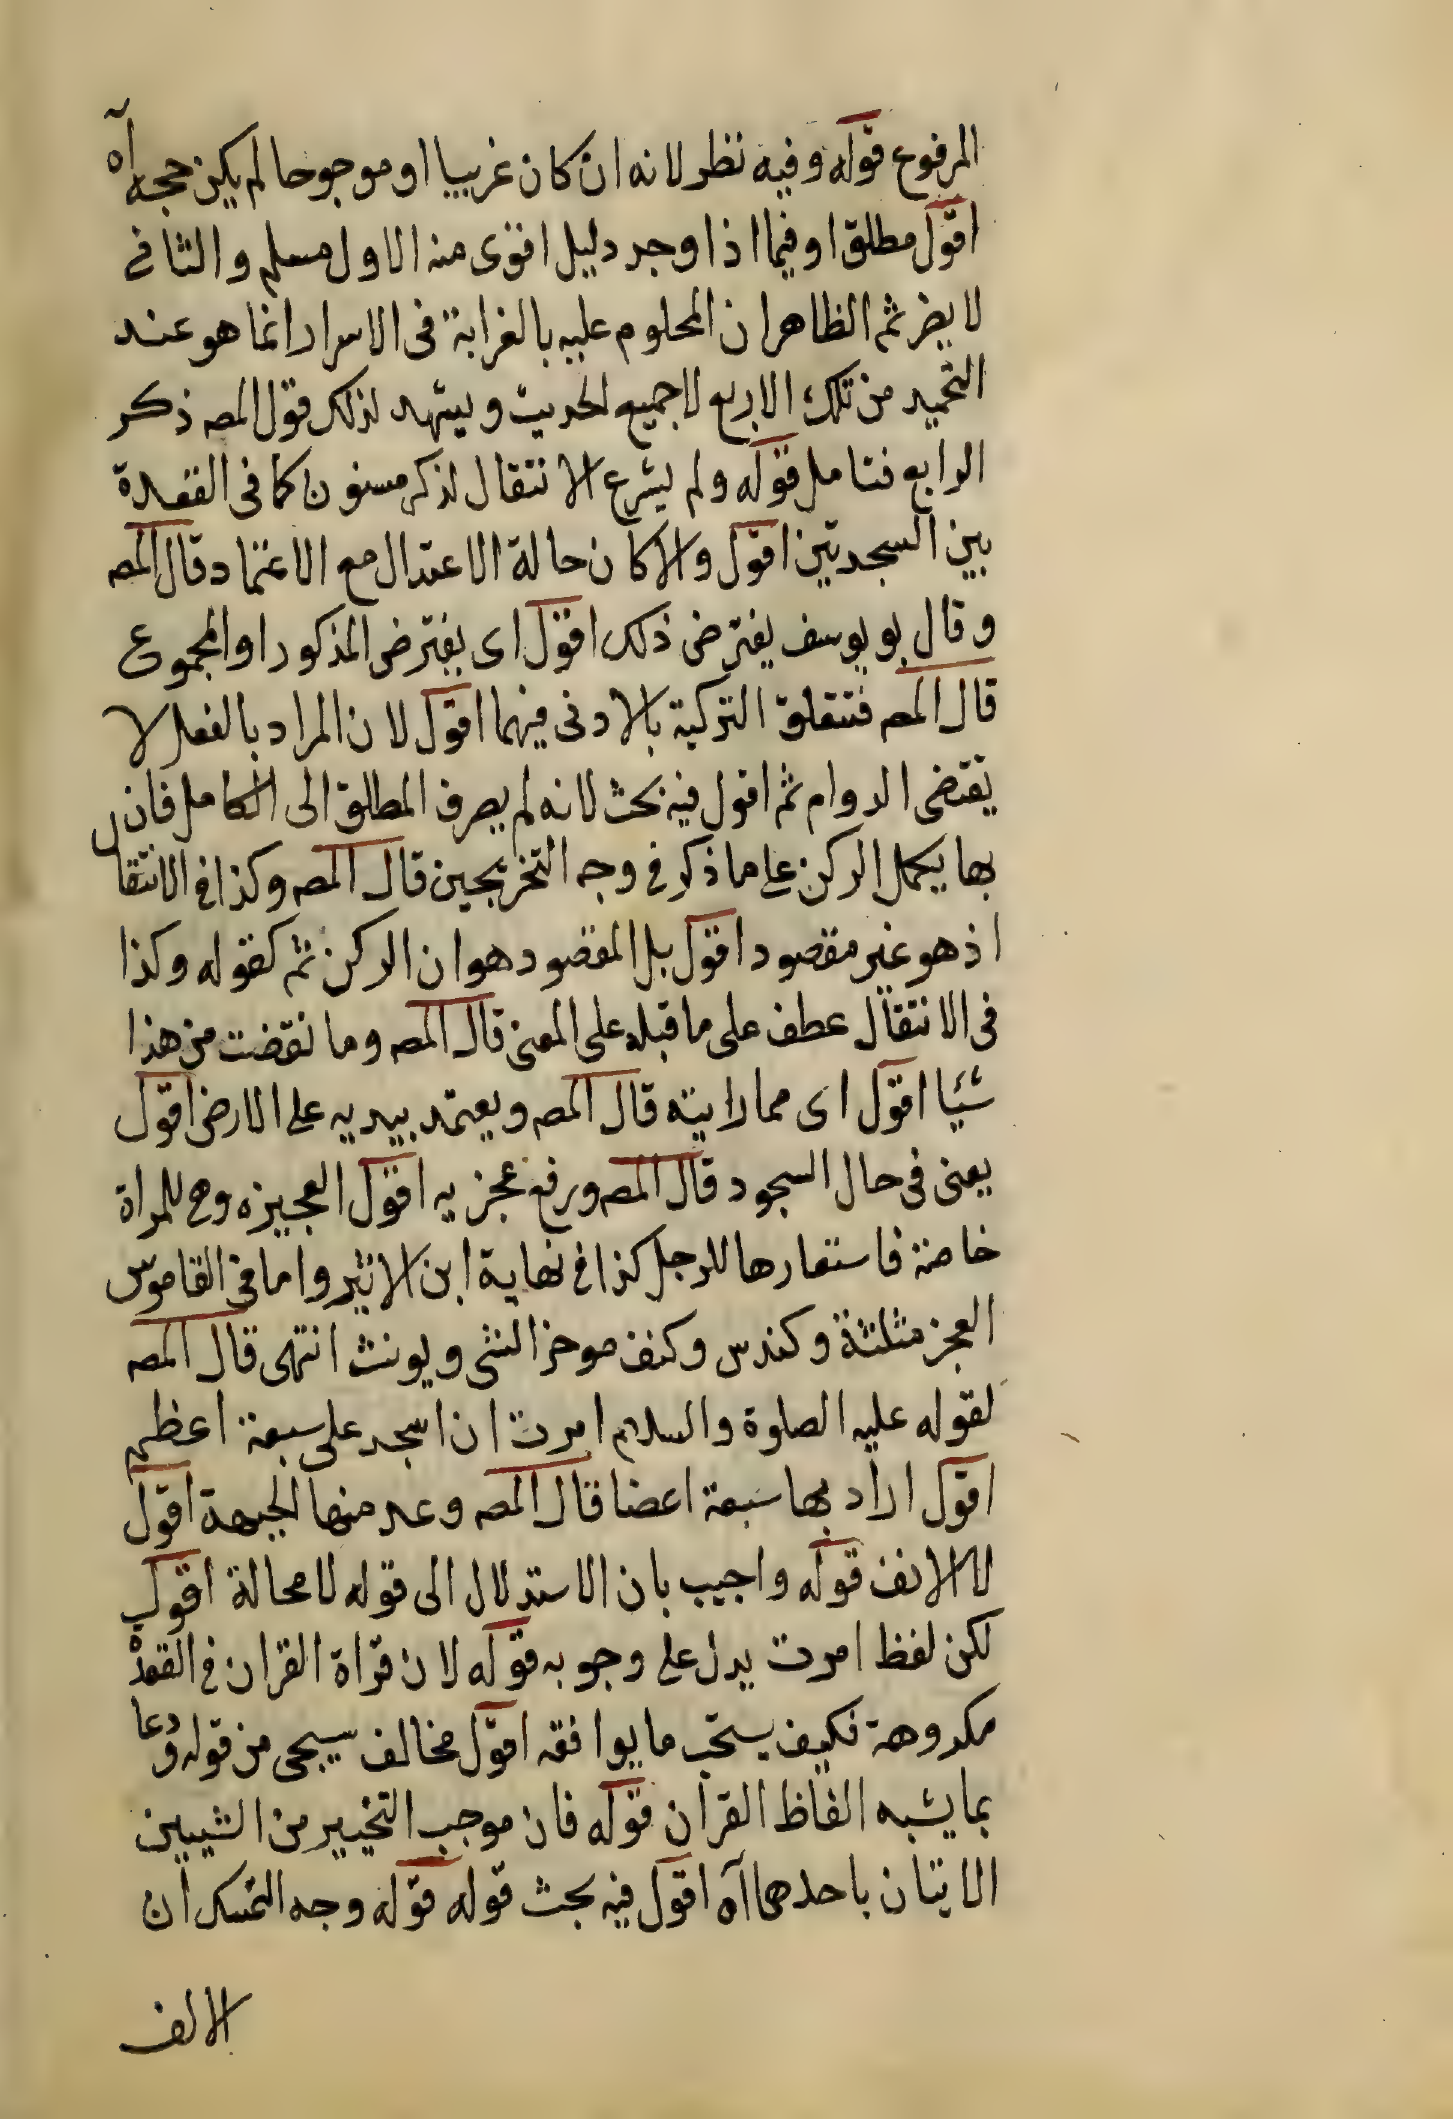 المرفوع قوله وفيه نظر لانه ان كان غريبا او موجوحا لم يكن حجة آه
اقول مطلقا وفيما اذا وجد دليل اقوى منه الاول مسلم والثانى
لا يضر ثم الظاهر ان المحلوم عليه بالغرابة فى الاسرار انما هو عند
التحميد من تلك الاربع لا جميع الحديث ويشهد لذلك قول المصه ذكر
الرابع فتامل قوله ولم يشرع الانتقال لذكر مسنون كما فى القعدة
بين السجدتين اقول والا كان حالة الاعتدال مع الاعتماد قال المصه
وقال بو يوسف يفترض ذلك اقول اى يفترض المذكور او المجموع
قال المصه فتتقلق التركية بالادنى فيهما اقول لان المراد بالفعل لا
يقتضى الدوام ثم اقول فيه بحث لانه لم يصرف المطلق الى الكامل فان
بها يكمل الركن على ما ذكر فى وجه التخريجين قال المصه وكذا فى الانتقال
اذ هو غير مقصود اقول بل المقصود هو ان الركن ثم كقوله وكذا
فى الانتقال عطف على ما قبله على المعنى قال المصه وما نقضت من هذا
شيئا اقول اى مما رايته قال المصه ويعتمد بيديه على الارض اقول
يعنى فى حال السجود قال المصه ورفع عجزيه اقول العجيزه وهى للمراة
خاصة فاستعارها للرجل كذا فى نهاية ابن الاثير واما فى القاموس
العجز مثلثة وكندس وكنف موخز الشى ويونث انتهى قال المصه
لقوله عليه الصلوة والسلام امرت ان اسجد على سبعة اعظم
اقول اراد بها سبعة اعضا قال المصه وعد منها الجبهة اقول
لا الانف قوله واجيب بان الاستدلال الى قوله لا محالة اقول
لكن لفظ امرت يدل على وجوبه قوله لان قراة القران فى القعدة
مكروهة فكيف يستحب ما يوافقه اقول مخالف سيجى من قوله ودعا
بما يشبه الفاظ القران قوله فان موجب التخيير من الشيين
الاتيان باحدهما آه اقول فيه بحث قوله قوله وجه التمسك ان
الالف